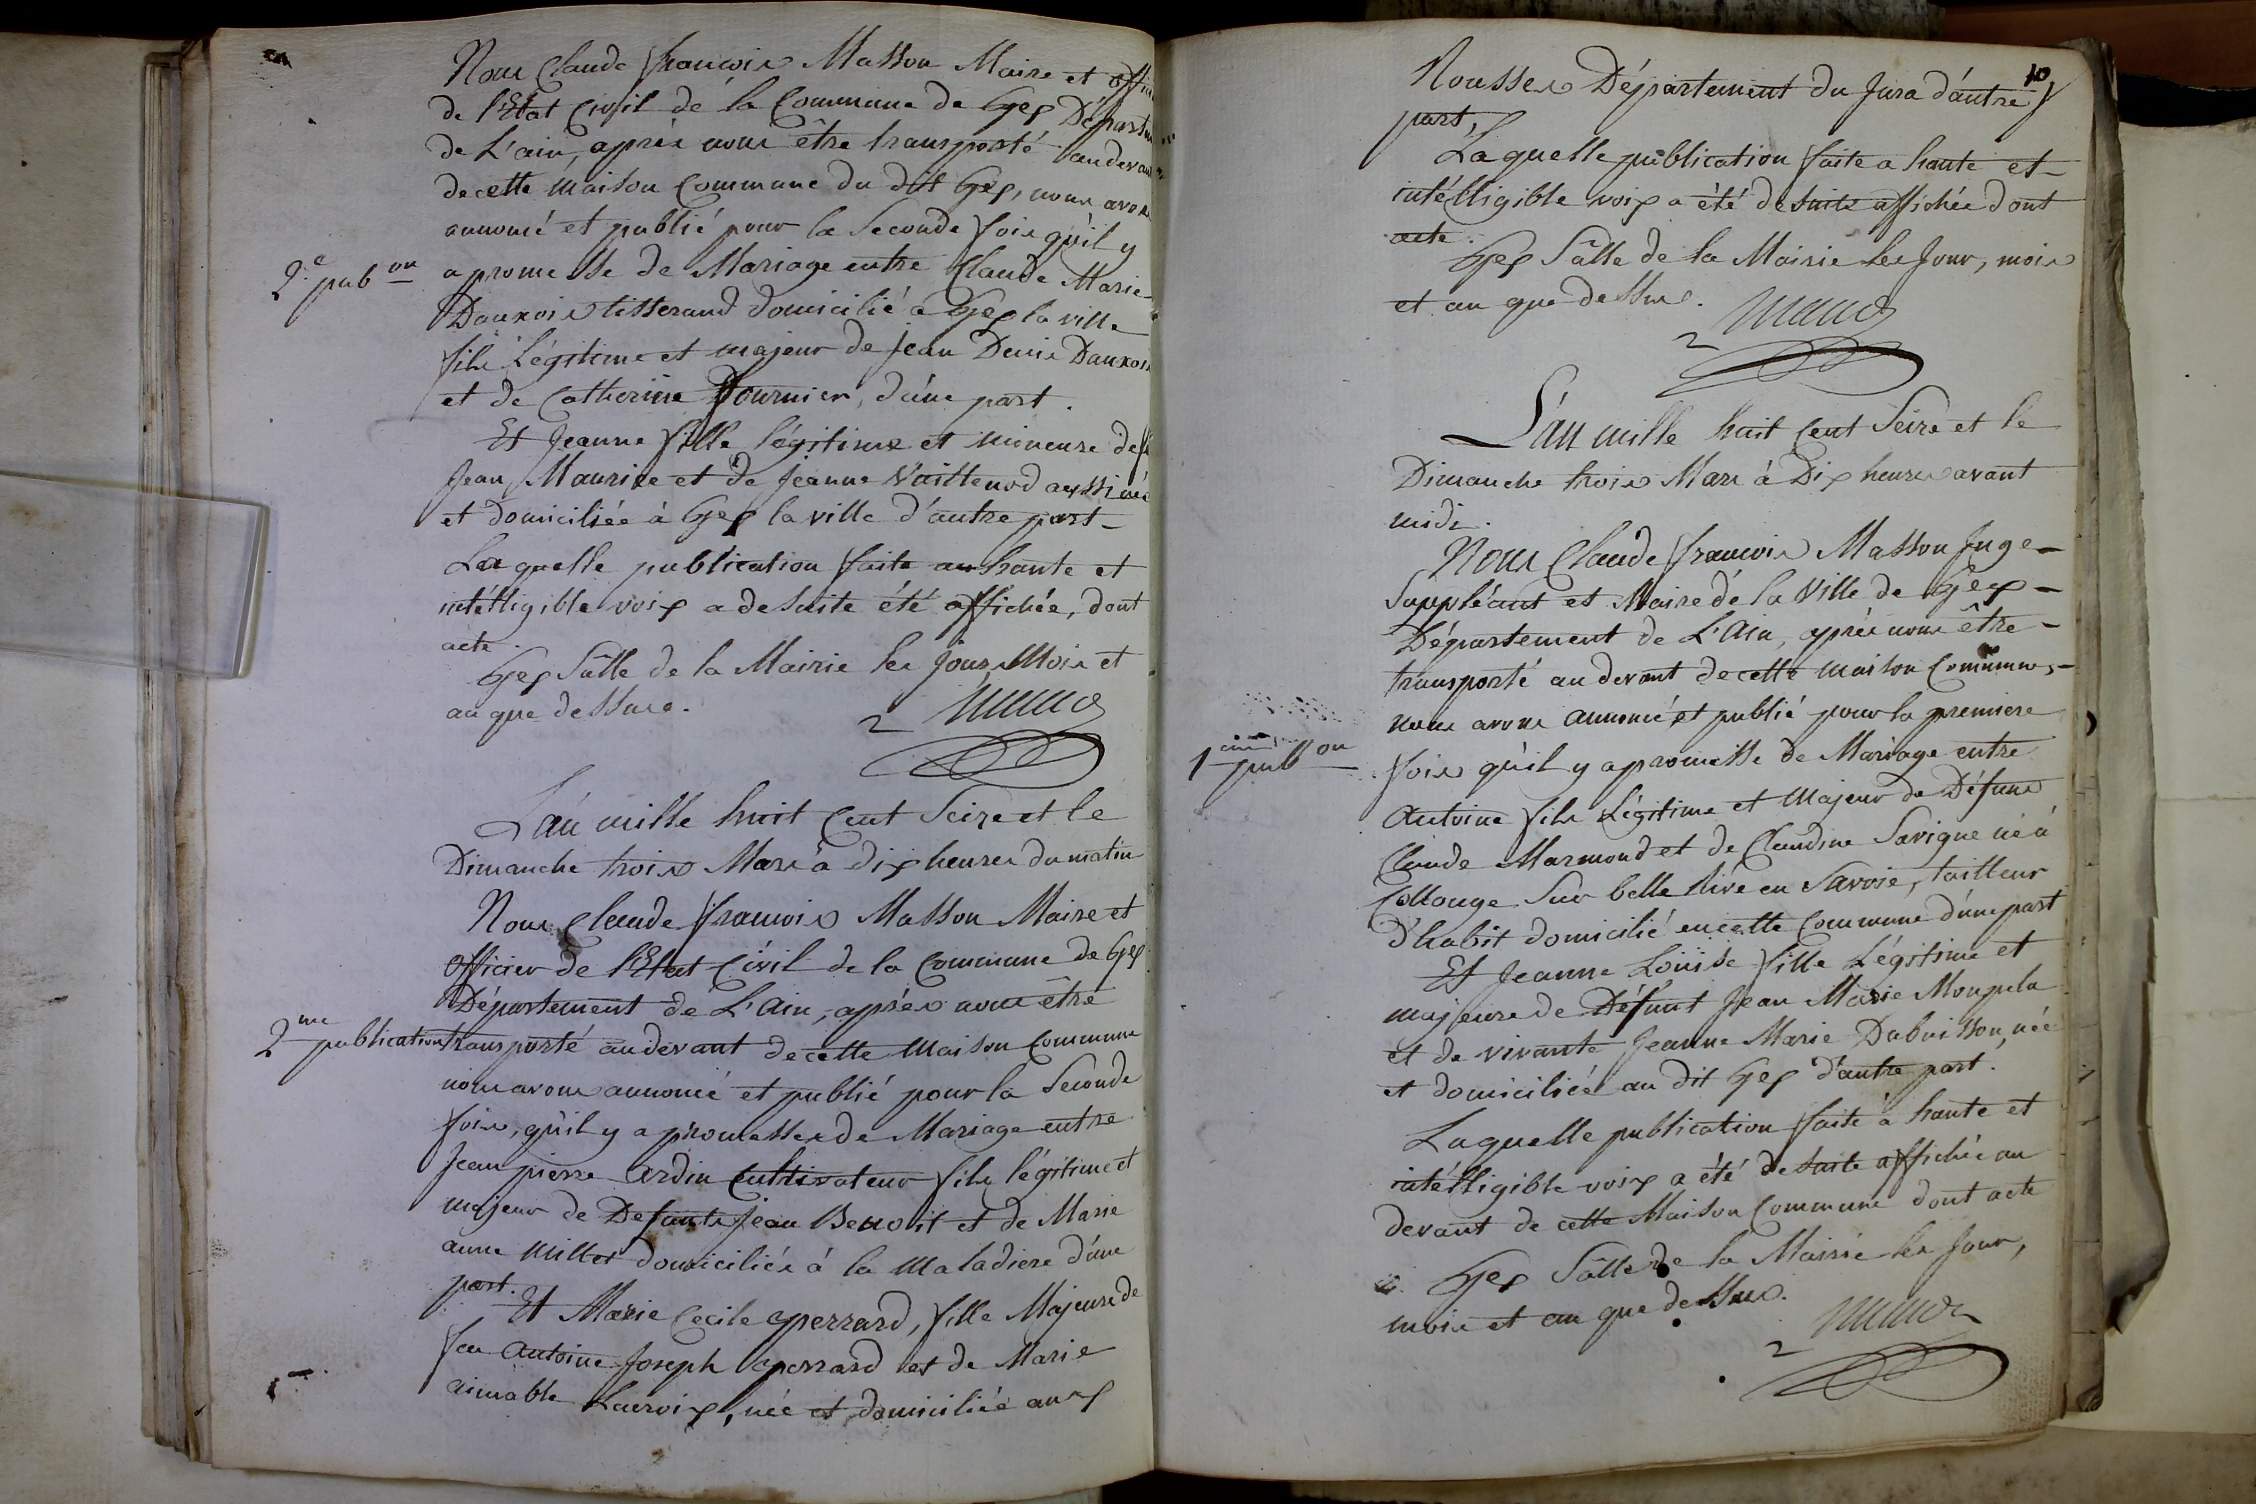 Nous Claude francois Masson Maire et offi
de l'Etat Civil de la Commune de Gex Départem
de L'ain, après nous être transporté au devan
de cette maison Commune du dit Gex, nous avons
annoncé et publié pour la Seconde fois qu'il y
2e pubon
a promesse de Mariage entre Claude Marie
Dauxois tisserand domicilié a Gex la ville
fils Légitime et majeur de Jean Denis Dauxois
et de Catherine fournier, d'une part.
Et Jeanne fille légitime et mineure de
Jean Maurice et de Jeanne Vaillenod aussi née
et domiciliée à Gex la ville d'autre part
Laquelle publication faite a haute et
intélligible voix a de Suite été affichée, dont
acte.
Gex Sâlle de la Mairie les jour Mois et
an que dessus.
L'an mille huit Cent Seize et le
Dimanche trois Mars à dix heures du matin
Nous Claude francois Masson Maire et
officier de l'Etat Civil de la Commune de Gex
Département de L'Ain, après nous être
2me publication
transporté au devant de cette Maison Commune
nous avons annoncé et publié pour la Seconde
fois, qu'il y a promesses de Mariage entre
Jean pierre Ardin Cultivateur fils légitime et
majeur de Defunts Jean Benoit et de Marie
anne Millet domiciliés à la Maladiere d'une
part.
Et Marie Cecile perrard, fille Majeure de
feu Antoine Joseph perrard et de Marie
aimable Lacroix, née et domiciliée aux
10
Rousses Département du Jura d'autre
part,
Laquelle publication faite a haute et
intélligible voix a été de suite affichée dont
acte.
Gex Sâlle de la Mairie les Jour, mois
et an que dessus.
L'an mille huit Cent Seize et le
Dimanche trois Mars à Dix heures avant
midi.
Nous Claude francois Masson Juge
Suppléant et Maire de la Ville de Gex
Département de L'Ain, après nous être
transporté au devant de cette maison Commune,
nous avons annoncé et publié pour la premiere
1ere pubon
fois qu'il y a promesse de Mariage entre
Antoine fils Légitime et Majeur de Défunts
Claude Marmond et de Claudine Savigne né à
Collonge Sur belle Rive en Savoie, tailleur
d'habit domicilié en cette Commune d'une part
Et Jeanne Loüise fille Légitime et
majeure de Défunt Jean Marie Monpela
et de vivante Jeanne Marie Dubuisson, née
et domiciliée au dit Gex d'autre part.
Laquelle publication faite à haute et
intélligible voix a été de suite affichée au
devant de cette Maison Commune dont acte
Gex Sâlle de la Mairie les Jour,
mois et an que dessus.